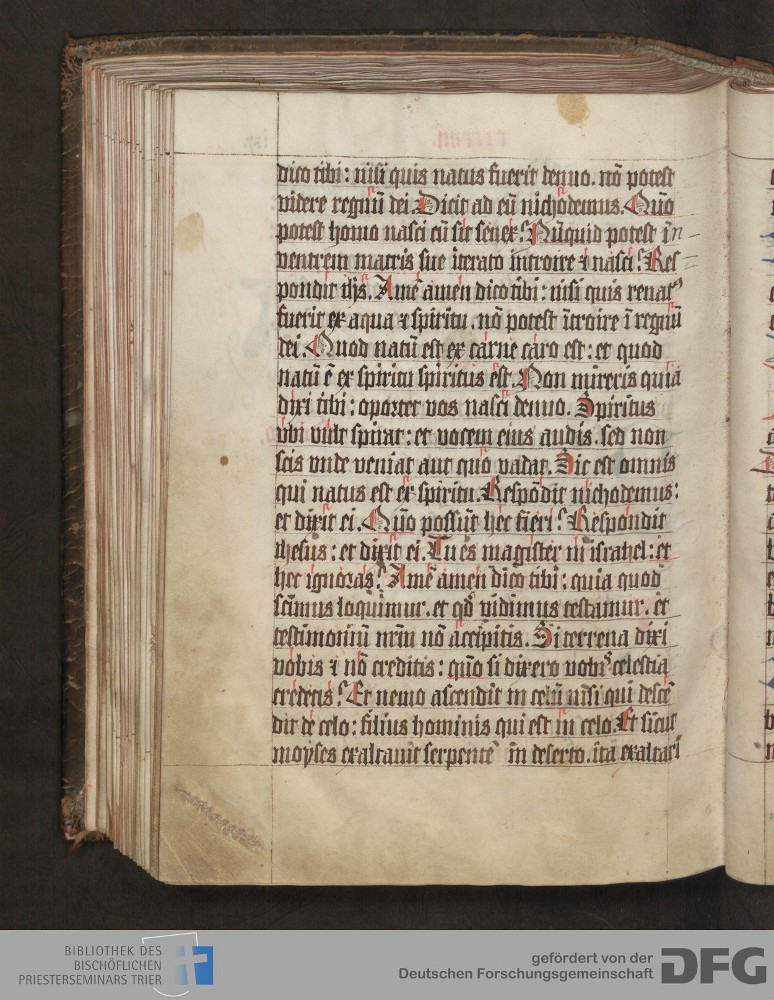 dico tibi: nisi quis natus fuerit denuo. nō potest
videre regnū dei. Dicit ad eū nichodemus. Quō
potest homo nasci cū sit senex? Nūquid potest in-
ventrem matris sue iterato introire ⁊ nasci? Res=
pondit ihs. Amē amen dico tibi: nisi quis renatꝰ
fuerit ex aqua ⁊ spiritu. nō potest ītroire ī regnū
dei. Quod natū est ex carne caro est: et quod
natū ē ex spiritu spiritus est. Non mireris quia
dixi tibi: oportet vos nasci denuo. Spiritus
vbi vult spirat: et vocem eius audis. sed non
scis vnde veniat aut quo vadat. Sic est omnis
qui natus est ex spiritu. Respōdit nichodemus:
et dixit ei. Quō possūt hec fieri? Respondit
ihesus: et dixit ei. Tu es magister in israhel: et
hec ignoras? Amē amen dico tibi: quia quod
scimus loquimur. et qd̄ vidimus testamur. et
testimoniū nr̄m nō accipitis. Si terrena dixi
vobis ⁊ nō creditis: quō si dixero vobis celestia
credetis? Et nemo ascendit in celū nisi qui descē
dit de celo: filius hominis qui est in celo. Et sicut
moyses exaltauit serpentē in deserto. ita exaltari
BIBLIOTHEK DES
BISCHÖFLICHEN
PRIESTERSEMINARS TRIER
gefördert von der
Deutschen Forschungsgemeinschaft DFG